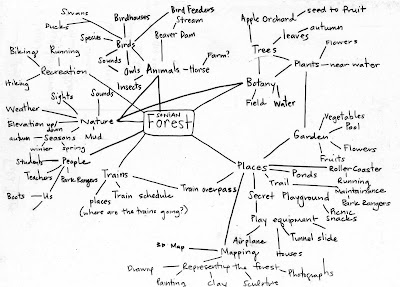 Swans
Ducks
Species
Birdhouses
Bird Feeders
Stream
Birds
Sounds
Owls
Beaver Dam
Animals
Farm?
Horse
Insects
Apple Orchard
seed to fruit
leaves
autumn
Trees
Flowers
Plants
near water
Botany
Field
Water
Biking
Running
Hiking
Recreation
Sights
Sounds
Weather
Nature
Elevation up/down
Seasons
Mud
autumn
winter
Spring
SONIAN
Forest
Garden
Vegetables
Pool
Flowers
Fruits
People
Students
Teachers
Park Rangers
Boots
Us
Trains
places
Train schedule
(where are the trains going?)
Train overpass
Places
Ponds
Roller Coaster
Trail
Running
Maintainance
Park Rangers
Secret Playground
Picnic
Snacks
Play equipment
Airplane
Houses
Tunnel slide
Mapping
3D Map
Representing the forest
Drawing
Painting
Clay
Sculpture
Photographs